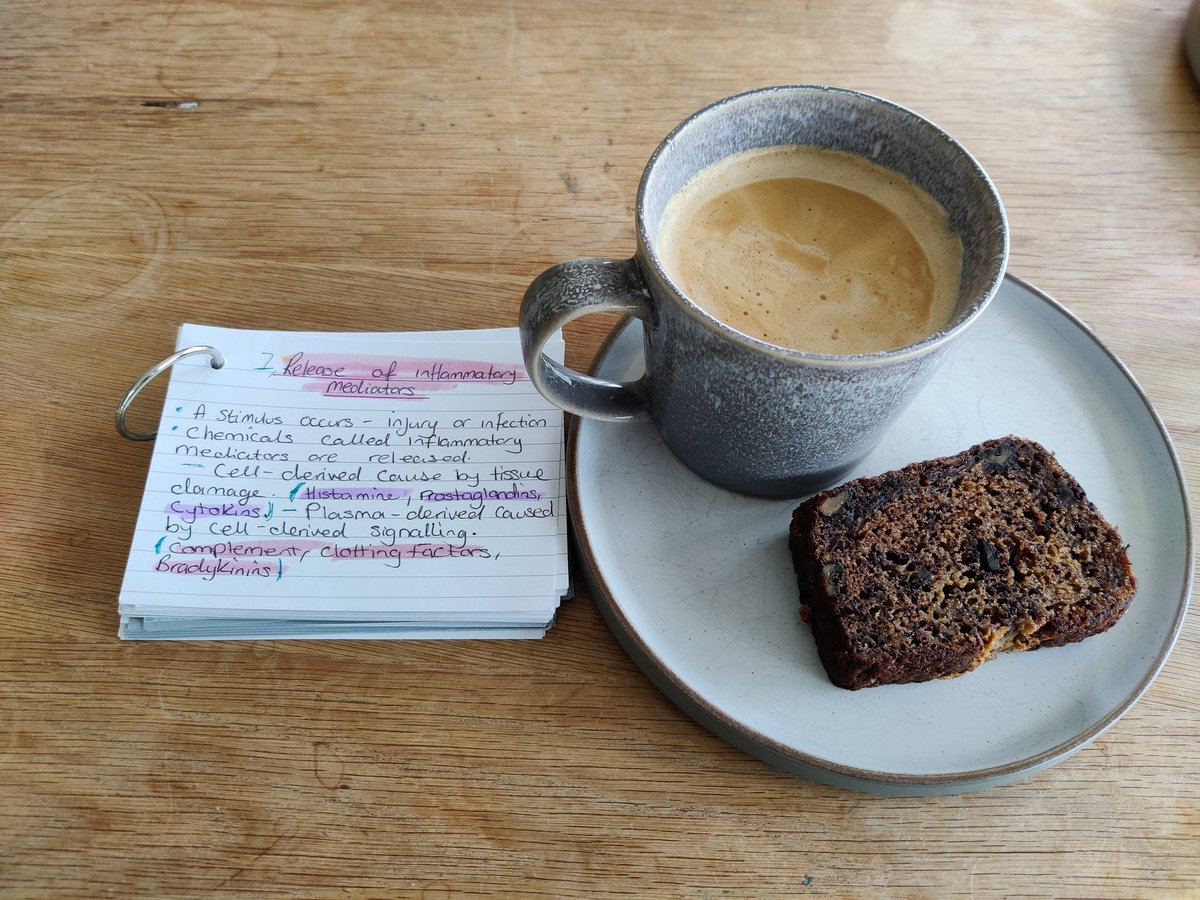 1, Release of inflammatory
mediators
• A stimulus occurs - injury or infection
• Chemicals called inflammatory
mediators are released.
- Cell-derived cause by tissue
damage. (Histamine, Prostaglandins,
Cytokins) - Plasma-derived caused
by cell-derived signalling.
(Complement, Clotting factors,
Bradykinins)